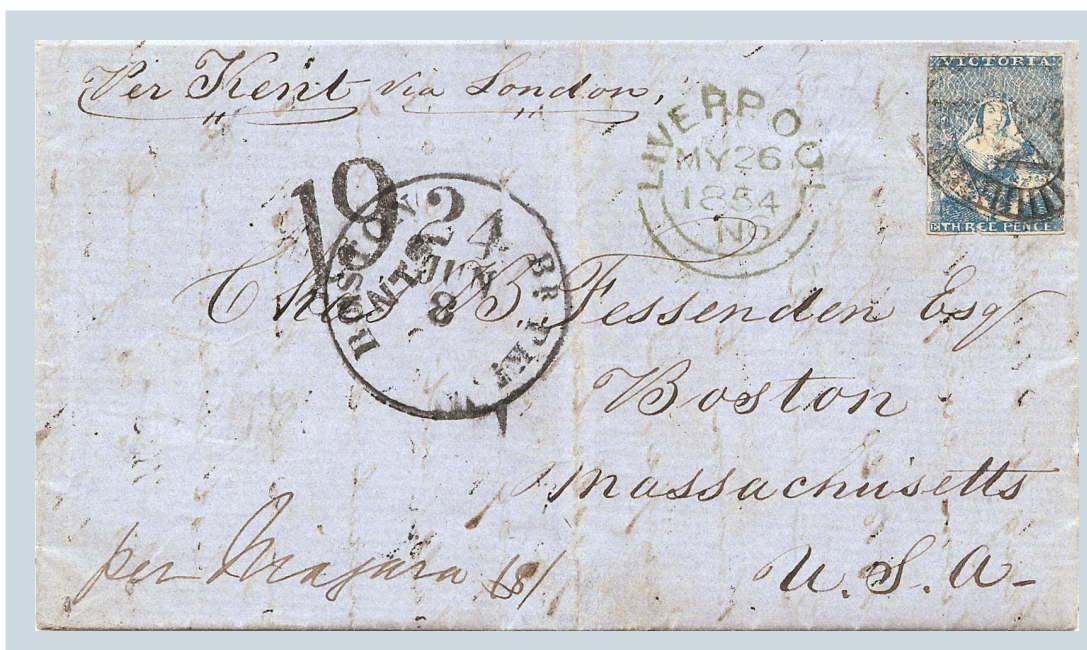 Per Kent via London,
VICTORIA
THREE PENCE
LIVERPOOL
MY 26
1854
19
CENTS
BOSTON BR. PKT.
24
JUN
8
Chas B. Fessenden Esq
Boston
Massachusetts
U.S.A-
per Niagara